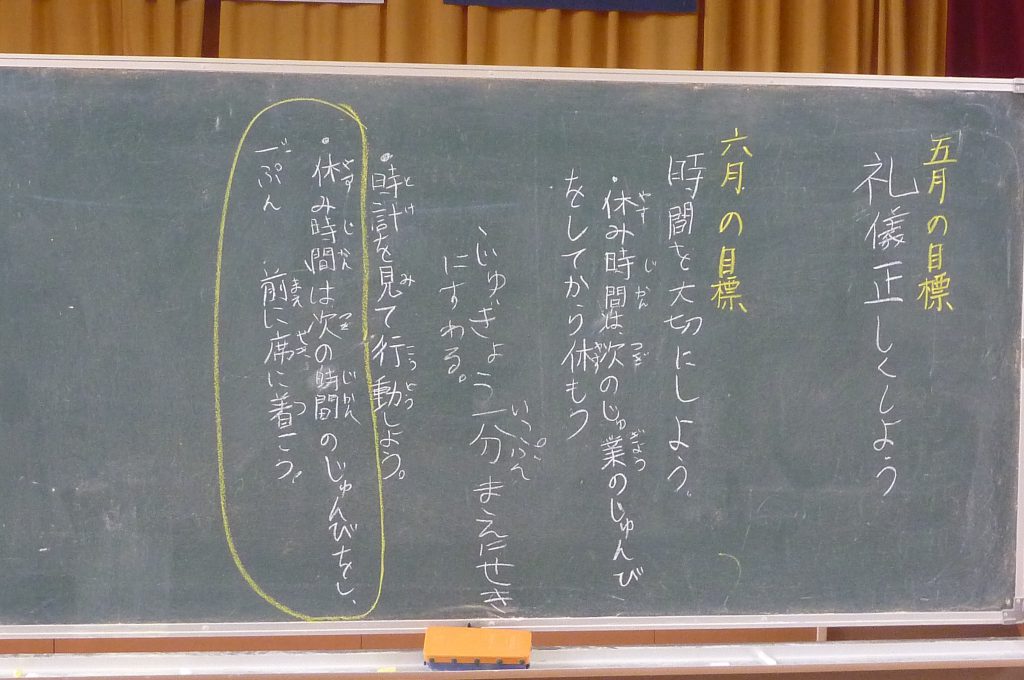 五月の目標
礼儀正しくしよう
六月の目標
時間を大切にしよう。
・休み時間は次のじゅ業のじゅんび
をしてから休もう
・じゅぎょう一分まえにせき
にすわる。
・時計を見て行動しよう。
・休み時間は次の時間のじゅんびをし、
一ぷん前に席に着こう。